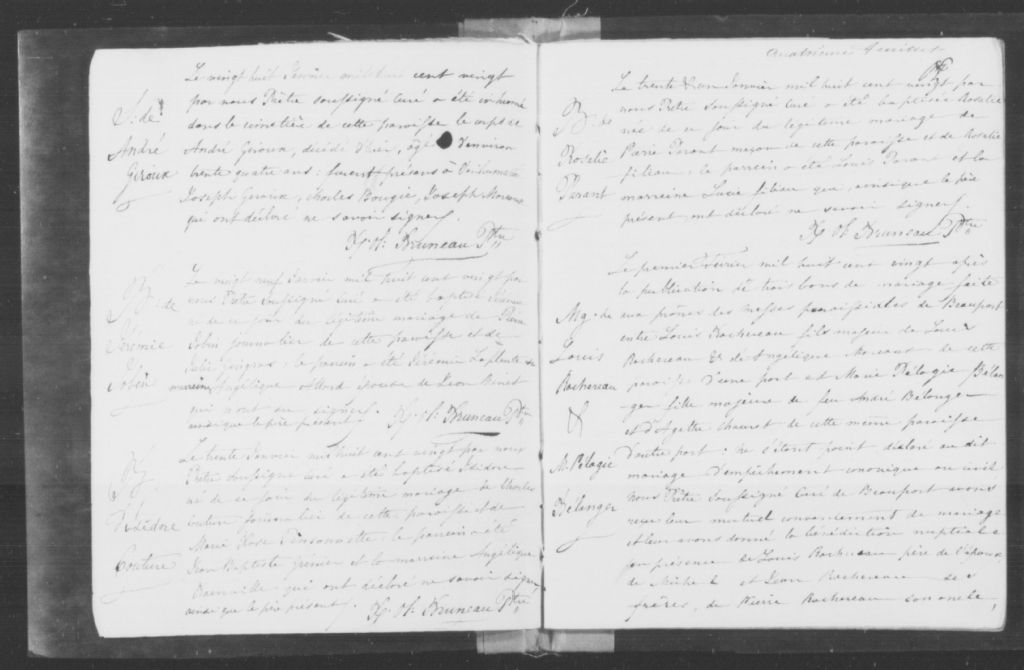 S. de
André
Giroux
Le vingt huit Janvier mil huit cent vingt
par nous Prêtre soussigné Curé a été inhumé
dans le cimetière de cette paroisse le corps de
André Giroux, décédé d'hier, agé d'environ
trente quatre ans : furent présens à l'inhumation
Joseph Giroux, Charles Bougie, Joseph
qui ont déclaré ne savoir signer.
Bruneau Ptre
B. de
Jérémie
Robin
Le vingt neuf Janvier mil huit cent vingt par
nous Prêtre soussigné Curé a été baptisé Jérémie
né de ce jour du légitime mariage de Pierre
Robin journalier de cette paroisse et de
le parrein a été Jérémie Laplante la
marreine Angélique épouse de Jean Binet
qui n'ont su signer.
ainsi que le père présent.
Bruneau Ptre
B.
d'Isidore
Couture
Le trente Janvier mil huit cent vingt par nous
Prêtre soussigné Curé a été baptisé Isidore
né de ce jour du légitime mariage de Charles
Couture journalier de cette paroisse et de
Marie Rose le parrein a été
Jean Baptiste Grenier et la marreine Angélique
qui ont déclaré ne savoir signer,
ainsi que le père présent.
Bruneau Ptre
quatrième
B. de
Rosalie
Parant
Le trente & un Janvier mil huit cent vingt par
nous Prêtre soussigné Curé a été baptisée Rosalie
née de ce jour du légitime mariage de
Pierre Parant maçon de cette paroisse et de Rosalie
filion, le parrein a été Louis Parant et la
marreine Lucie filion qui, ainsi que le père
présent ont déclaré ne savoir signer.
Bruneau Ptre
Mg. de
Louis
Rochereau
&
M. Pélagie
Bélanger
Le premier Février mil huit cent vingt après
la publication de trois bans de mariage faite
aux prônes des Messes paroissiales de Beauport
entre Louis Rochereau fils majeur de Louis
Rochereau & de Angélique Moreaux de cette
paroisse d'une part et Marie Pélagie Bélan
ger fille majeure de feu André Belanger
et d'Agathe de cette même paroisse
d'autre part ; ne s'étant point déclaré au dit
mariage d'empêchement canonique ou civil
Nous Prêtre soussigné Curé de Beauport avons
reçu leur mutuel consentement de mariage
et leur avons donné la bénédiction nuptiale
en présence de Louis Rochereau père de l'époux,
de Michel et Jean Rochereau ses
frères, de Pierre Rochereau son oncle,